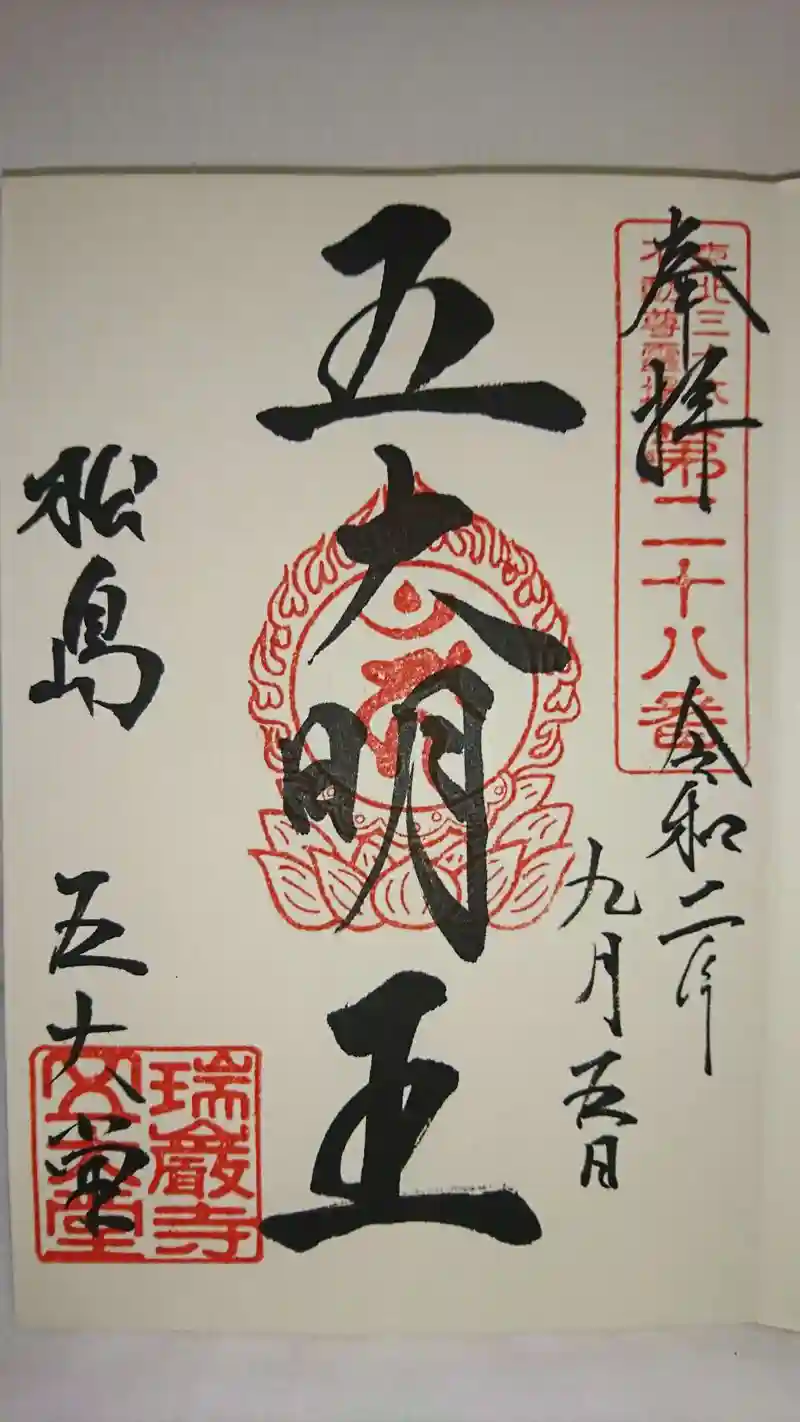 奉拝
東北三十六
不動尊霊場
第二十八番
令和二年
九月五日
五大明王
松島 五大堂
瑞巌寺
五大堂